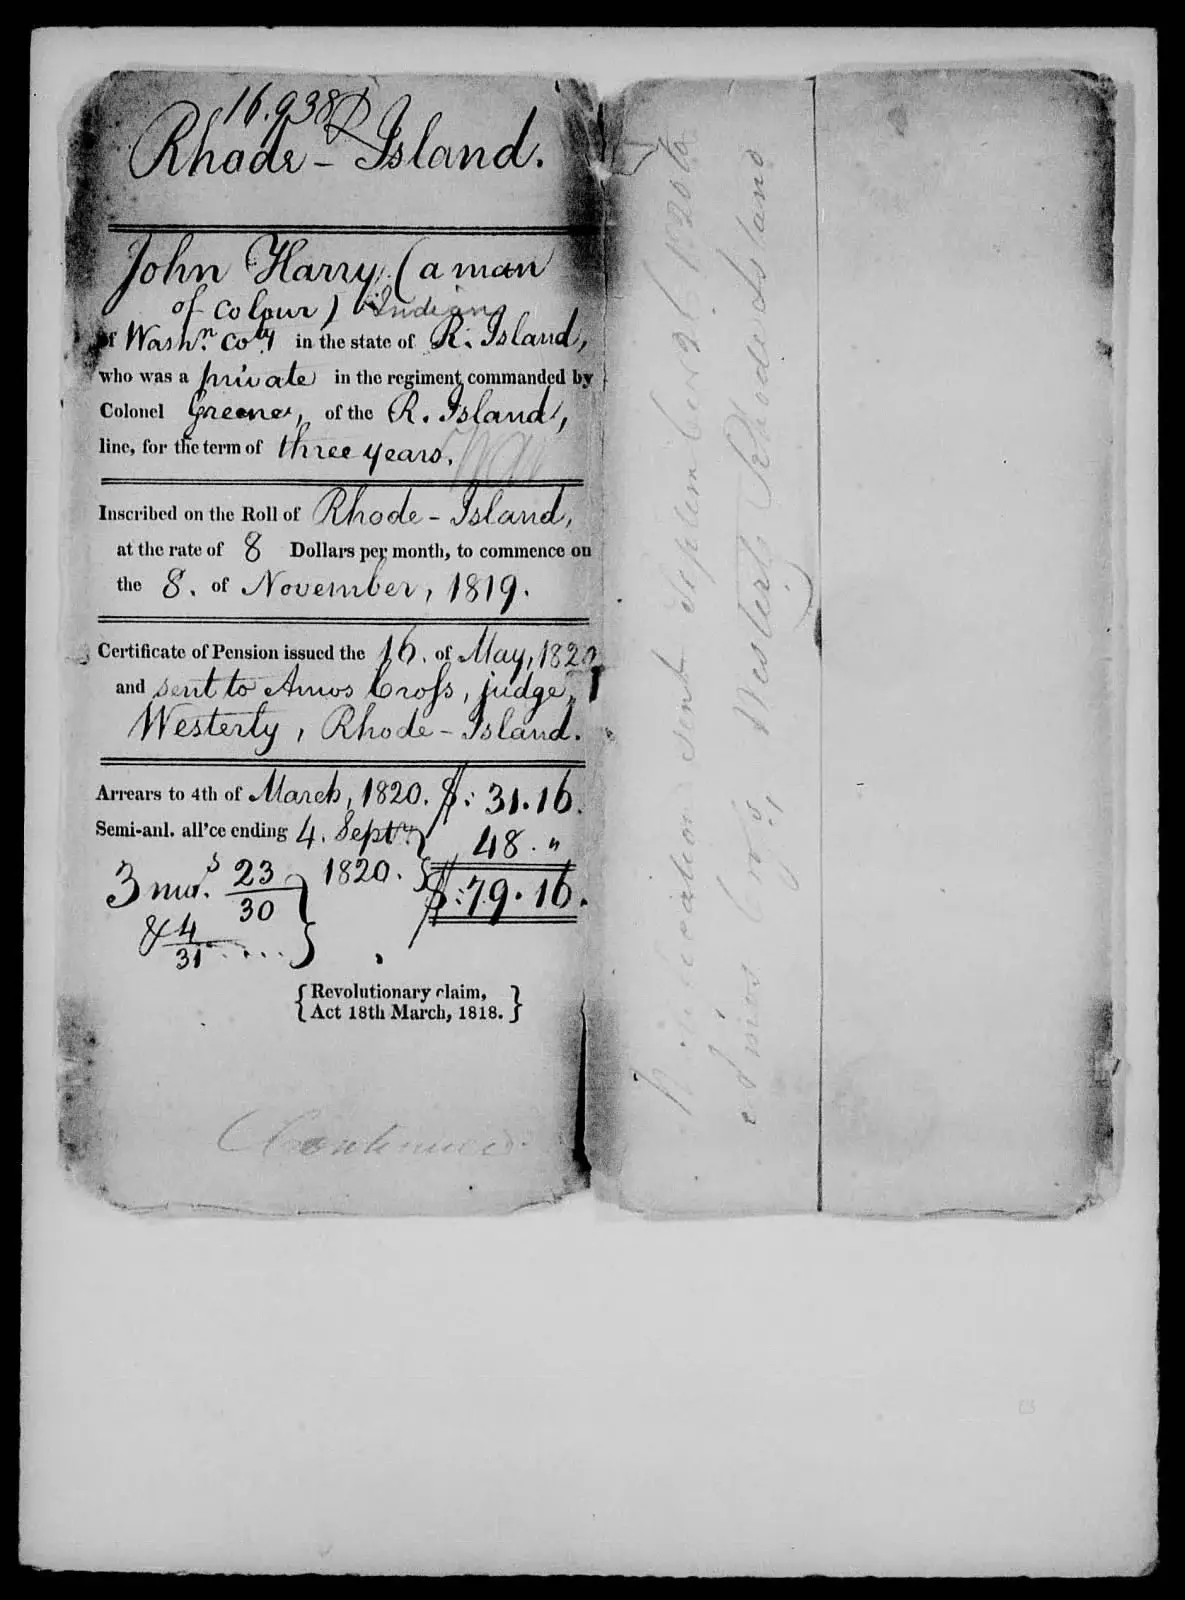 16.938
Rhode-Island.
John Harry, (a man
of Colour) Indian
of Washn. Coty in the state of R. Island,
who was a private in the regiment commanded by
Colonel Greene, of the R. Island,
line, for the term of three years. War
Inscribed on the Roll of Rhode-Island,
at the rate of 8 Dollars per month, to commence on
the 8. of November, 1819.
Certificate of Pension issued the 16. of May, 1820
and sent to Amos Cross, judge,
Westerly, Rhode-Island.
Arrears to 4th of March, 1820. $: 31.16.
Semi-anl. all'ce ending 4. Septr. } 48. "
1820. } $:79.16.
3 mos. 23/30 }
& 4/31 .... }
{ Revolutionary claim, }
{ Act 18th March, 1818. }
Continued.
Notification sent September 26 1820 to
Amos Cross, Westerly Rhode Island